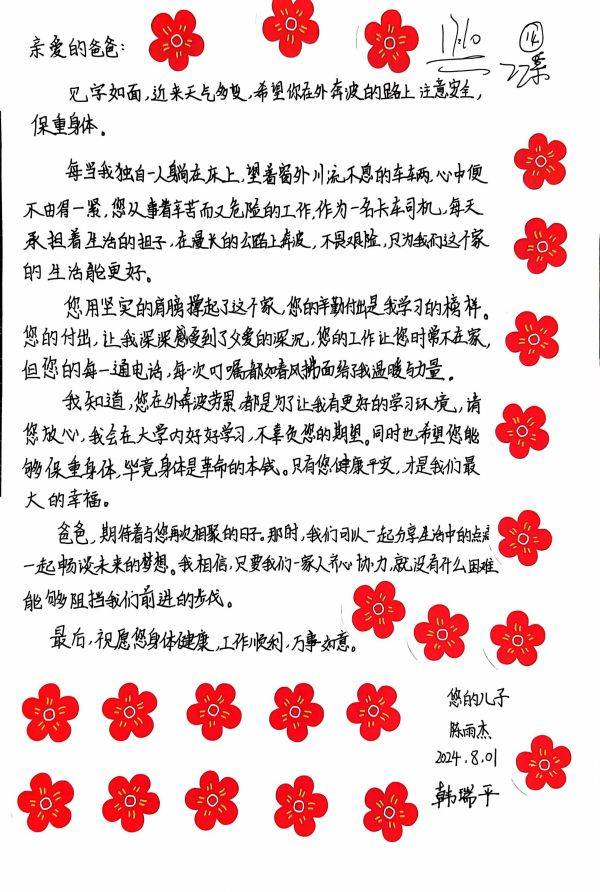 亲爱的爸爸：
17:10
14
见字如面，近来天气多变，希望你在外奔波的路上注意安全，
保重身体。
每当我独自一人躺在床上，望着窗外川流不息的车车两，心中便
不由得一紧，您从事着辛苦而又危险的工作，作为一名卡车司机，每天
承担着生活的担子，在漫长的公路上奔波，不畏艰险，只为我们这个家
的生活能更好。
您用坚实的肩膀撑起了这个家，您的辛勤付出是我学习的榜样。
您的付出，让我深深感受到了父爱的深沉，您的工作让您时常不在家，
但您的每一通电话，每一次叮嘱都如春风拂面给了我温暖与力量。
我知道，您在外奔波劳累，都是为了让我有更好的学习环境，请
您放心，我会在大学内好好学习，不辜负您的期望。同时也希望您能
够保重身体，毕竟身体是革命的本钱。只有您健康平安，才是我们最
大的幸福。
爸爸，期待着与您再次相聚的日子。那时，我们可以一起分享生活中的点滴
一起畅谈未来的梦想。我相信，只要我们一家人齐心协力，就没有什么困难
能够阻挡我们前进的步伐。
最后，祝愿您身体健康，工作顺利，万事如意。
您的儿子
陈雨杰
2024.8.01
韩瑞平